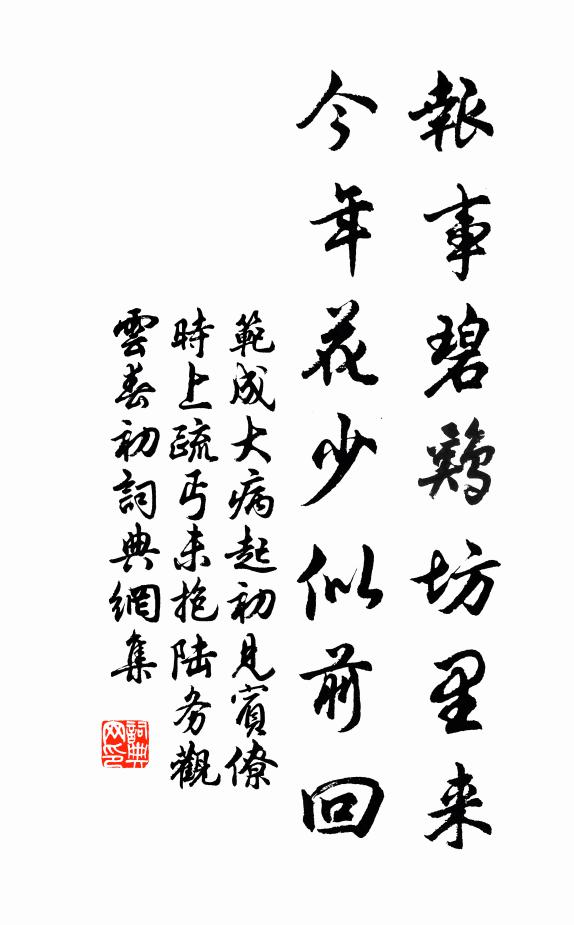 報事碧鷄坊里来
今年花少似前回
範成大病起初見賓僚
時上疏丐未抱陸务觀
雲春初詞典網集
詞典网印